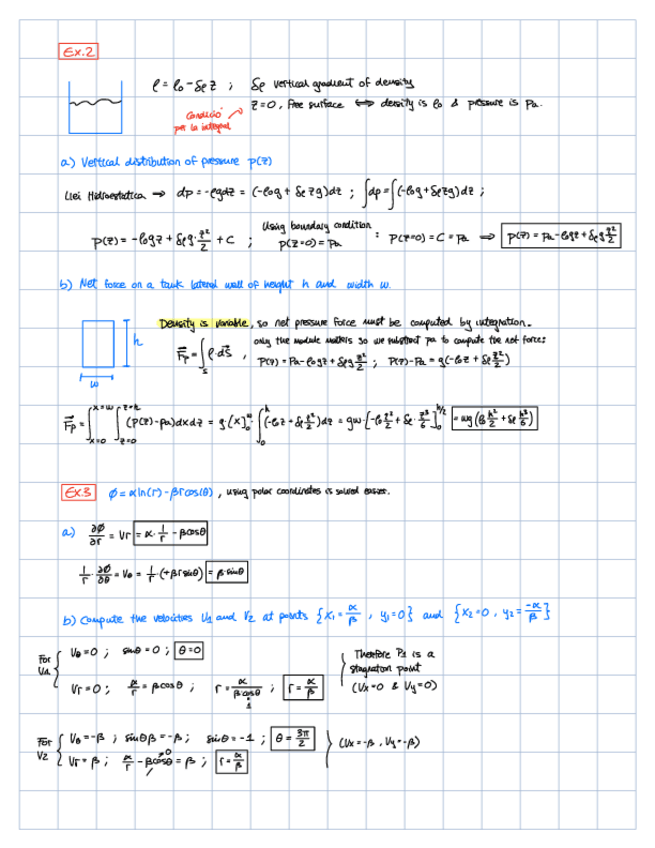 Ex.2
ρ = ρ₀ - δρ z ; δρ vertical gradient of density
z=0, free surface ⟺ density is ρ₀ & pressure is Pa.
Condició
per la integral
a) Vertical distribution of pressure p(z)
Llei Hidroestatica → dp = -ρgdz = (-ρ₀g + δρ z g)dz ; ∫dp = ∫(-ρ₀g + δρ z g)dz ;
p(z) = -ρ₀gz + δρ g · z²/2 + C ; Using boundary condition p(z=0) = Pa : p(z=0) = C = Pa ⟹ p(z) = Pa - ρ₀gz + δρ g z²/2
b) Net force on a tank lateral wall of height h and width w.
h
w
Density is variable, so net pressure force must be computed by integration.
only the module matters so we substract pa to compute the net force:
F⃗p = ∫s p·ds⃗ , p(z) = Pa - ρ₀gz + δρ g z²/2 ; p(z) - Pa = g(-ρ₀z + δρ z²/2)
F⃗p = ∫x=0^x=w ∫z=0^z=h (p(z)-pa)dxdz = g·[x]₀^w · ∫₀^h (-ρ₀z + δρ z²/2)dz = gw·[-ρ₀ z²/2 + δρ · z³/6]₀^h = wg(ρ₀ h²/2 + δρ h³/6)
Ex.3 ϕ = α ln(r) - βr cos(θ) , using polar coordinates is solved easier.
a) ∂ϕ/∂r = Vr = α · 1/r - β cosθ
1/r · ∂ϕ/∂θ = Vθ = 1/r · (+βr sinθ) = β · sinθ
b) Compute the velocities V1 and V2 at points {x₁ = α/β , y₁=0} and {x₂=0 , y₂ = -α/β}
For V1 { Vθ=0 ; sinθ = 0 ; θ=0
Vr=0 ; α/r = β cosθ ; r = α/(β cosθ) ; r = α/β
1
Therefore P1 is a
stagnation point
(Vx=0 & Vy=0)
For V2 { Vθ=-β ; sinθ β = -β ; sinθ = -1 ; θ = 3π/2
Vr = β ; α/r - β cosθ = β ; r = α/β
0
(Vx=-β , Vy=-β)